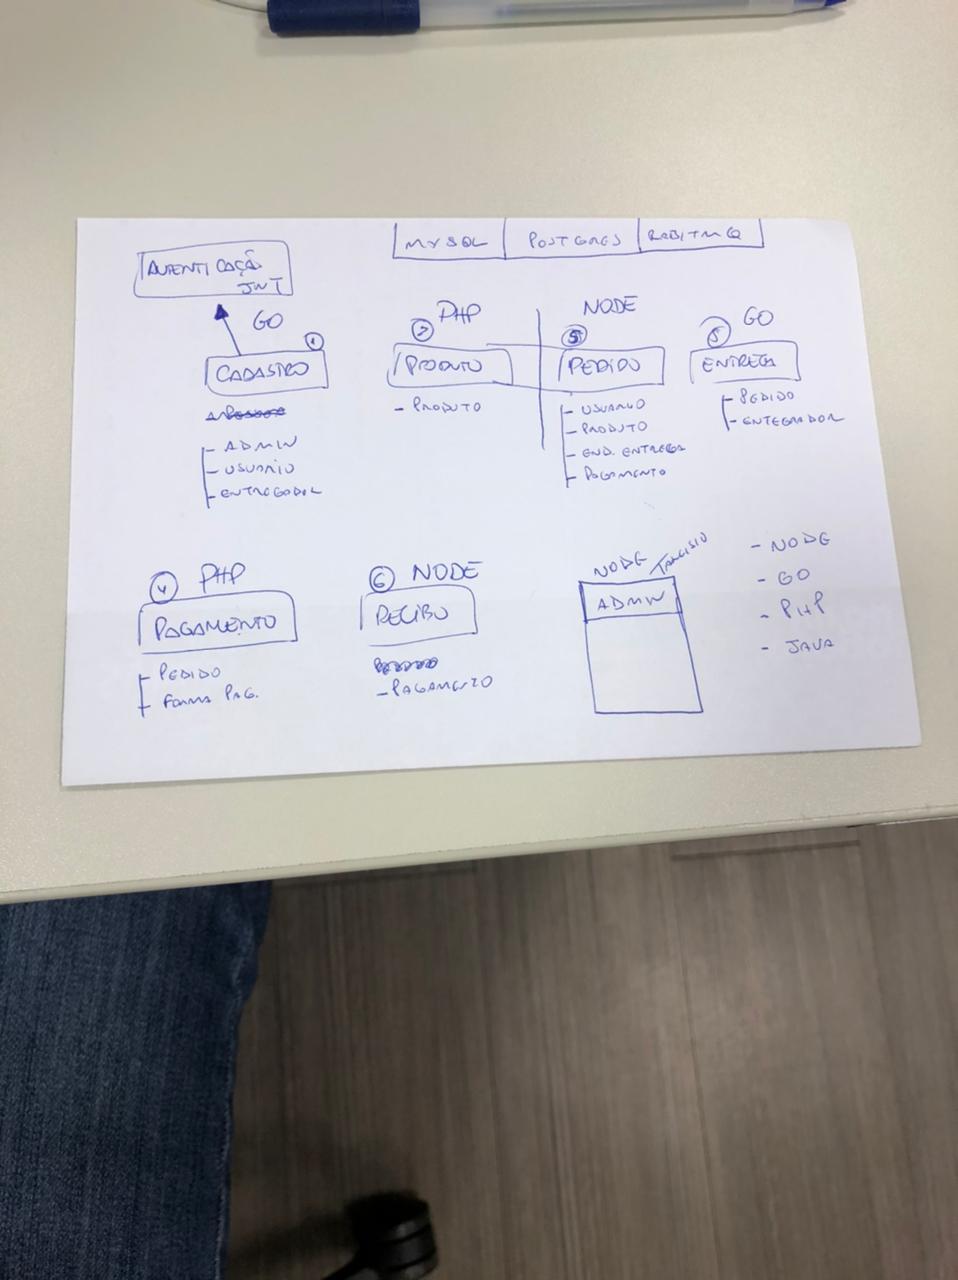 MYSQL POSTGRES RABITMQ
AUTENTICAÇÃO
JWT
GO
1
CADASTRO
- ADMIN
- USUARIO
- ENTREGADOR
2 PHP
PRODUTO
- PRODUTO
NODE
PEDIDO
- USUARIO
- PRODUTO
- END. ENTREGA
- PAGAMENTO
5 GO
ENTREGA
- PEDIDO
- ENTEGADOR
4 PHP
PAGAMENTO
- PEDIDO
- FORMA PAG.
6 NODE
RECIBO
- PAGAMENTO
NODE TARCISIO
ADMIN
- NODE
- GO
- PHP
- JAVA